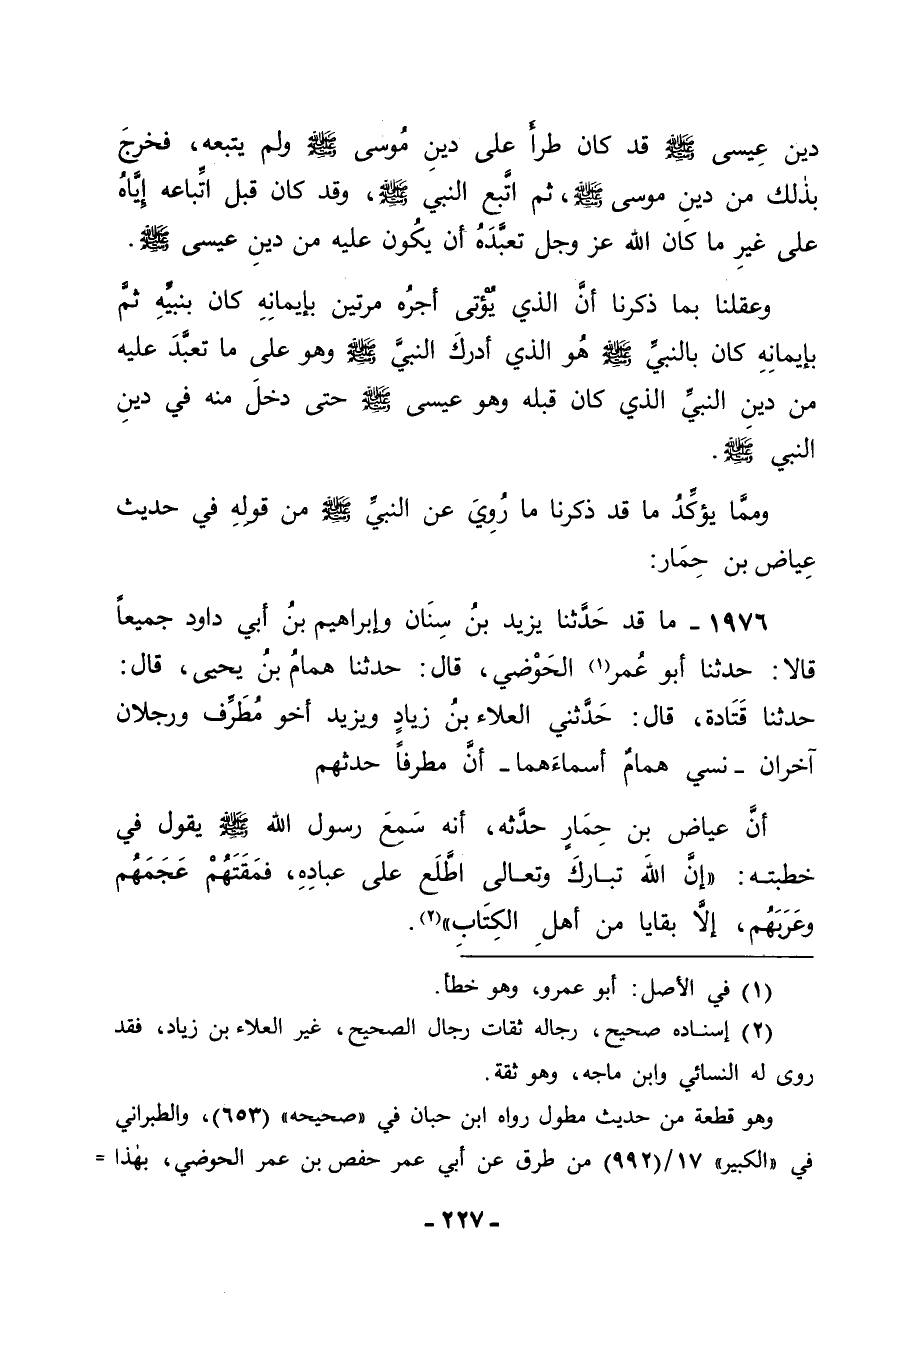 دين عِيسى ﷺ قد كان طرأَ على دينِ مُوسى ﷺ ولم يتبعه، فخرجَ
بذٰلك من دينِ موسى ﷺ، ثم اتَّبع النبي ﷺ، وقد كان قبل اتِّباعه إيَّاهُ
على غيرِ ما كان الله عز وجل تعبَّدَهُ أن يكُون عليه من دينِ عيسى ﷺ.
وعقلنا بما ذكرنا أنَّ الذي يُؤْتى أجرُه مرتين بإيمانِهِ كان بنبيِّهِ ثمَّ
بإيمانِهِ كان بالنبيِّ ﷺ هُو الذي أدركَ النبيَّ ﷺ وهو على ما تعبَّدَ عليه
من دينِ النبيِّ الذي كان قبله وهو عيسى ﷺ حتى دخلَ منه في دينِ
النبي ﷺ.
وممَّا يؤكِّدُ ما قد ذكرنا ما رُوِيَ عن النبيِّ ﷺ من قولِهِ في حديث
عِياض بن حِمَار:
١٩٧٦ ـ ما قد حَدَّثنا يزيد بنُ سِنَان وإبراهيم بنُ أبي داود جميعاً
قالا: حدثنا أبو عُمر(١) الحَوْضي، قال: حدثنا همامُ بنُ يحيى، قال:
حدثنا قَتَادة، قال: حَدَّثني العلاء بنُ زيادٍ ويزيد أخو مُطَرِّف ورجلان
آخران ـ نسي همامٌ أسماءَهما ـ أنَّ مطرفاً حدثهم
أنَّ عياض بن حِمَارٍ حدَّثه، أنه سَمِعَ رسول الله ﷺ يقول في
خطبته: «إنَّ اللهَ تباركَ وتعالى اطَّلَع على عبادِهِ، فمَقَتَهُمْ عَجَمَهُم
وعَرَبَهُم، إلَّا بقايا من أهلِ الكِتَابِ»(٢).
(١) في الأصل: أبو عمرو، وهو خطأ.
(٢) إسناده صحيح، رجاله ثقات رجال الصحيح، غير العلاء بن زياد، فقد
روى له النسائي وابن ماجه، وهو ثقة.
وهو قطعة من حديث مطول رواه ابن حبان في «صحيحه» (٦٥٣)، والطبراني
في «الكبير» ١٧/(٩٩٢) من طرق عن أبي عمر حفص بن عمر الحوضي، بهٰذا =
ـ ٢٢٧ ـ